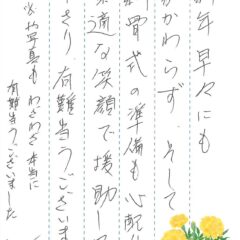 年早々にも
かかわらず、そして
骨式の準備も心配
適な笑顔で援助し
さり、有難当うございま
や写真も わざわざ 本当に
有難当うございました